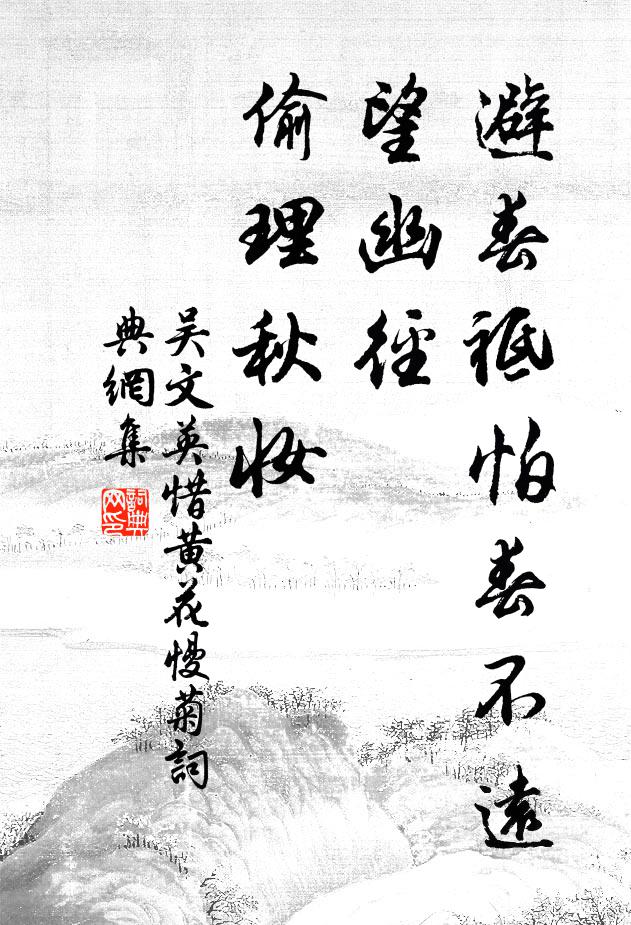 避春祗怕春不遠
望幽徑
偷理秋妝
吳文英惜黃花慢菊詞
典網集
詞典网印